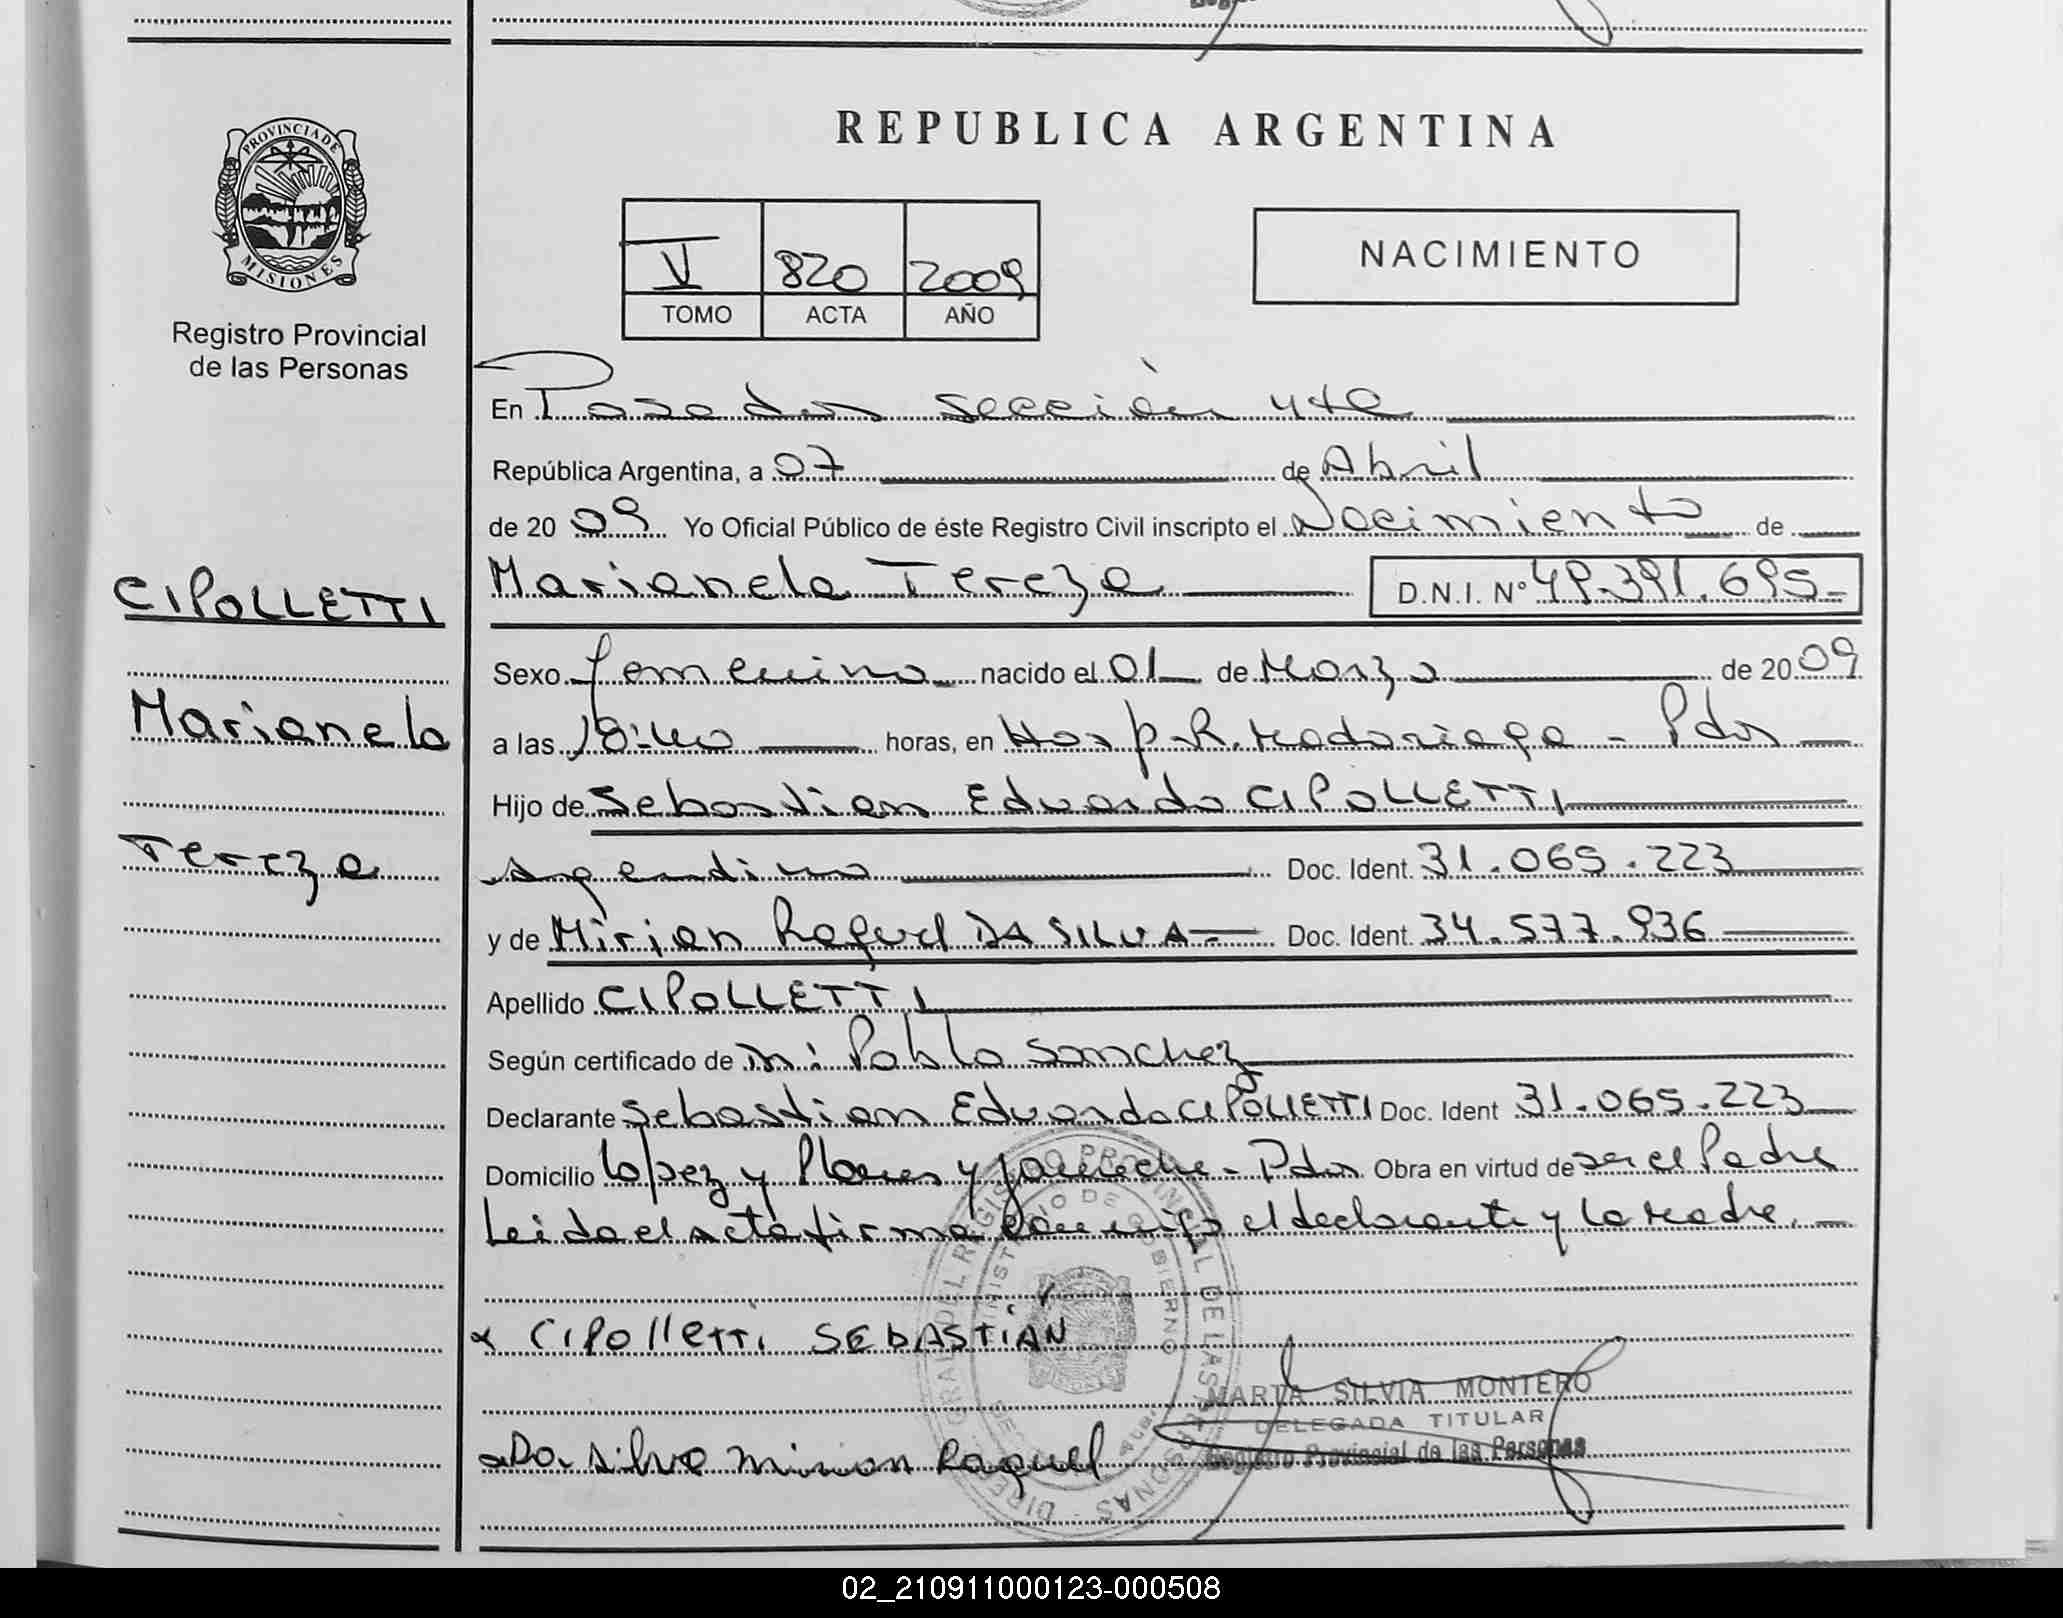 PROVINCIA DE
MISIONES
Registro Provincial
de las Personas
CIPOLLETTI
Marianela
Tereza
REPUBLICA ARGENTINA
V 820 2009
TOMO ACTA AÑO
NACIMIENTO
En Posadas sección 4ta
República Argentina, a 07 de Abril
de 20 09 Yo Oficial Público de éste Registro Civil inscripto el Nacimiento de
Marianela Tereza D.N.I. Nº 49.391.695-
Sexo femenino nacido el 01 de Marzo de 20 09
a las 18:40 horas, en Hosp. R. Madariaga - Pdas
Hijo de Sebastian Eduardo CIPOLLETTI
argentino Doc. Ident. 31.065.223
y de Mirian Raquel DA SILVA Doc. Ident. 34.577.936
Apellido CIPOLLETTI
Según certificado de Pablo Sanchez
Declarante Sebastian Eduardo CIPOLLETTI Doc. Ident 31.065.223
Domicilio Lopez y Planes y - Pdas Obra en virtud de ser el Padre
Leida el acta firma conmigo el declarante y la Madre.
CIPOllETTi SEBASTIÁN
MARTA SILVIA MONTERO
DELEGADA TITULAR
Registro Provincial de las Personas
Da silva mirian Raquel
02_210911000123-000508